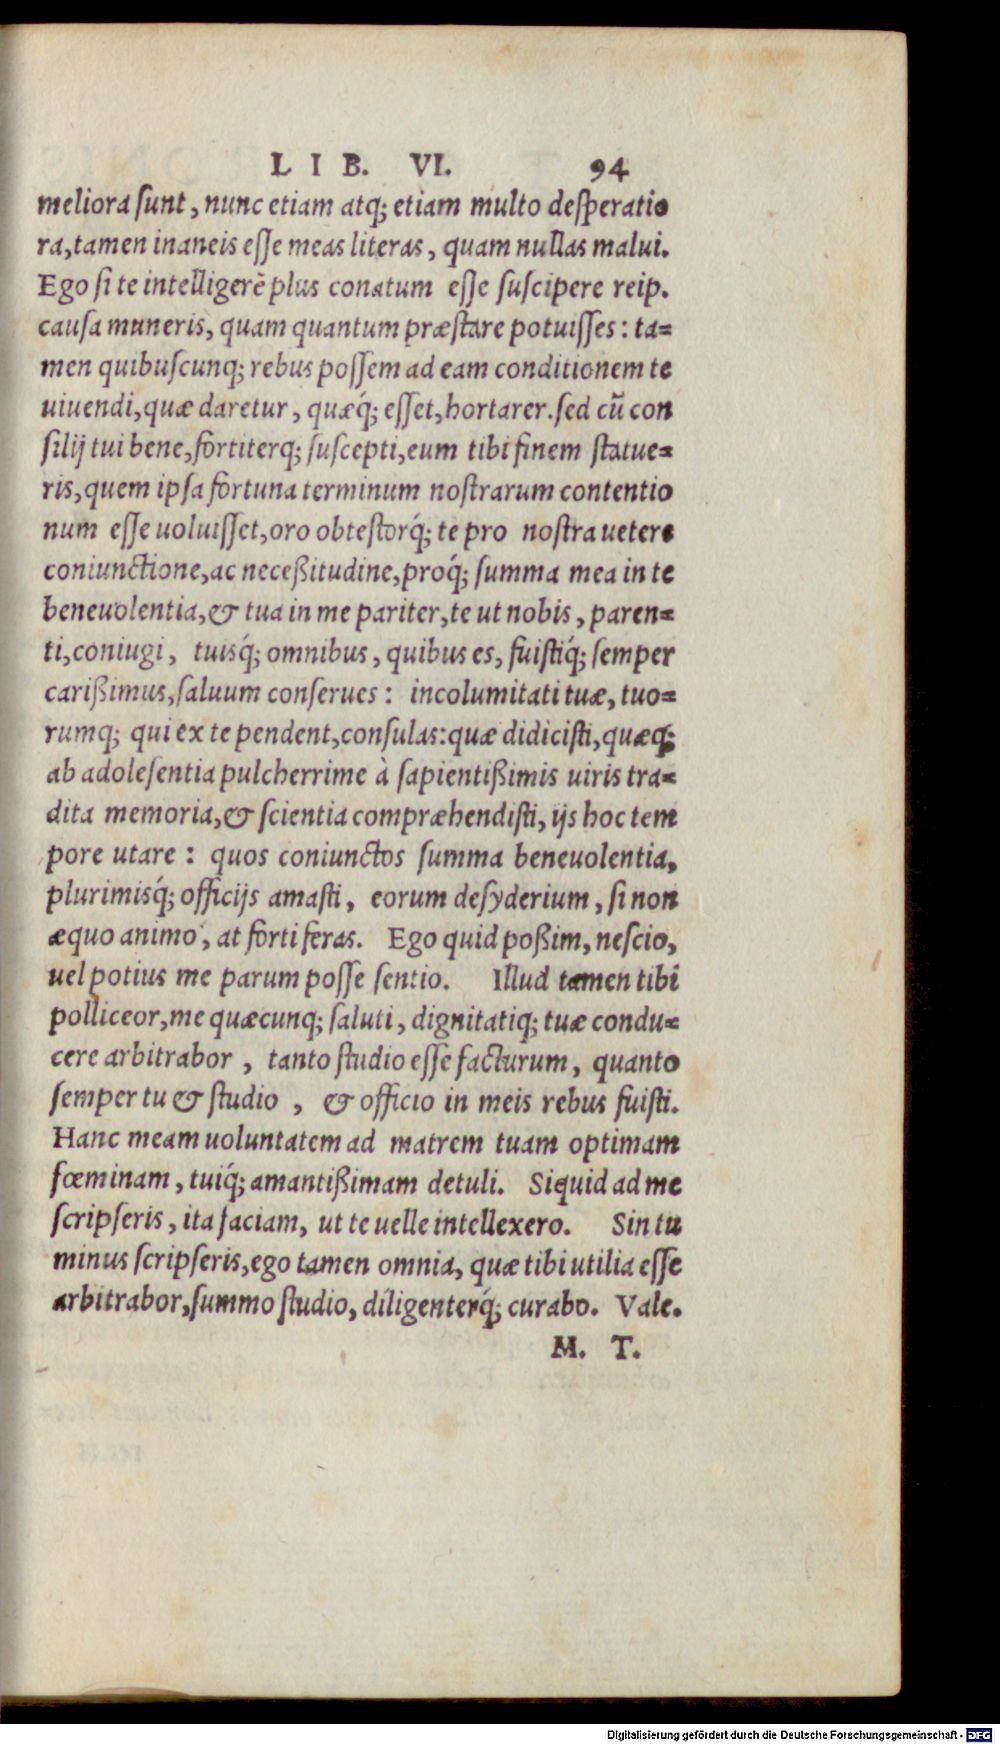 LIB. VI. 94
meliora sunt, nunc etiam atq; etiam multo desperatio
ra, tamen inaneis esse meas literas, quam nullas malui.
Ego si te intelligerē plus conatum esse suscipere reip.
causa muneris, quam quantum præstare potuisses: ta=
men quibuscunq; rebus possem ad eam conditionem te
uiuendi, quæ daretur, quæq́; esset, hortarer. sed cū con
silij tui bene, fortiterq; suscepti, eum tibi finem statue=
ris, quem ipsa fortuna terminum nostrarum contentio
num esse uoluisset, oro obtestorq́; te pro nostra uetere
coniunctione, ac neceßitudine, proq́; summa mea in te
beneuolentia, & tua in me pariter, te ut nobis, paren=
ti, coniugi, tuisq́; omnibus, quibus es, fuistiq́; semper
carißimus, saluum conserues: incolumitati tuæ, tuo=
rumq; qui ex te pendent, consulas: quæ didicisti, quæq;
ab adolesentia pulcherrime à sapientißimis uiris tra=
dita memoria, & scientia compræhendisti, ijs hoc tem
pore utare: quos coniunctos summa beneuolentia,
plurimisq́; officijs amasti, eorum desyderium, si non
æquo animo, at forti feras. Ego quid poßim, nescio,
uel potius me parum posse sentio. Illud tamen tibi
polliceor, me quæcunq; saluti, dignitatiq; tuæ condu=
cere arbitrabor, tanto studio esse facturum, quanto
semper tu & studio, & officio in meis rebus fuisti.
Hanc meam uoluntatem ad matrem tuam optimam
fœminam, tuiq́; amantißimam detuli. Siquid ad me
scripseris, ita faciam, ut te uelle intellexero. Sin tu
minus scripseris, ego tamen omnia, quæ tibi utilia esse
arbitrabor, summo studio, diligenterq́; curabo. Vale.
M. T.
Digitalisierung gefördert durch die Deutsche Forschungsgemeinschaft - DFG